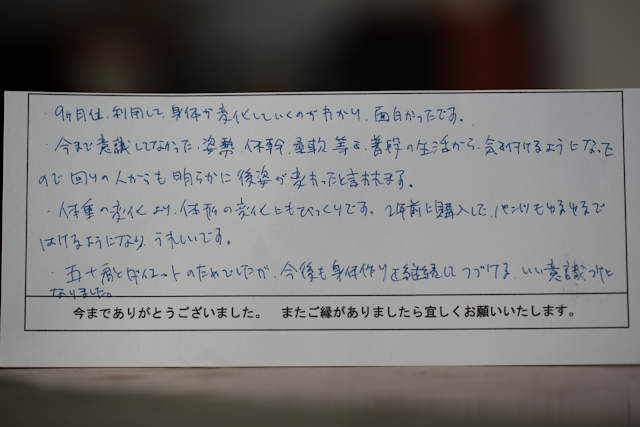 ・9ヶ月位、利用して、身体が変化していくのがわかり、面白かったです。
・今まで意識してなかった、姿勢、体幹、柔軟 等を、普段の生活から、気を付けるようになったの
ので 回りの人からも 明らかに 後姿が変わったと言われます。
・体重の変化より、体形の変化にもびっくりです。2年前に購入した、パンツもゆるゆるで
はけるようになり、うれしいです。
ダイエットのためでしたが、今後も身体作りを継続して つづける いい意識づけに
なりました。
今まで ありがとうございました。 またご縁がありましたら宜しくお願いいたします。